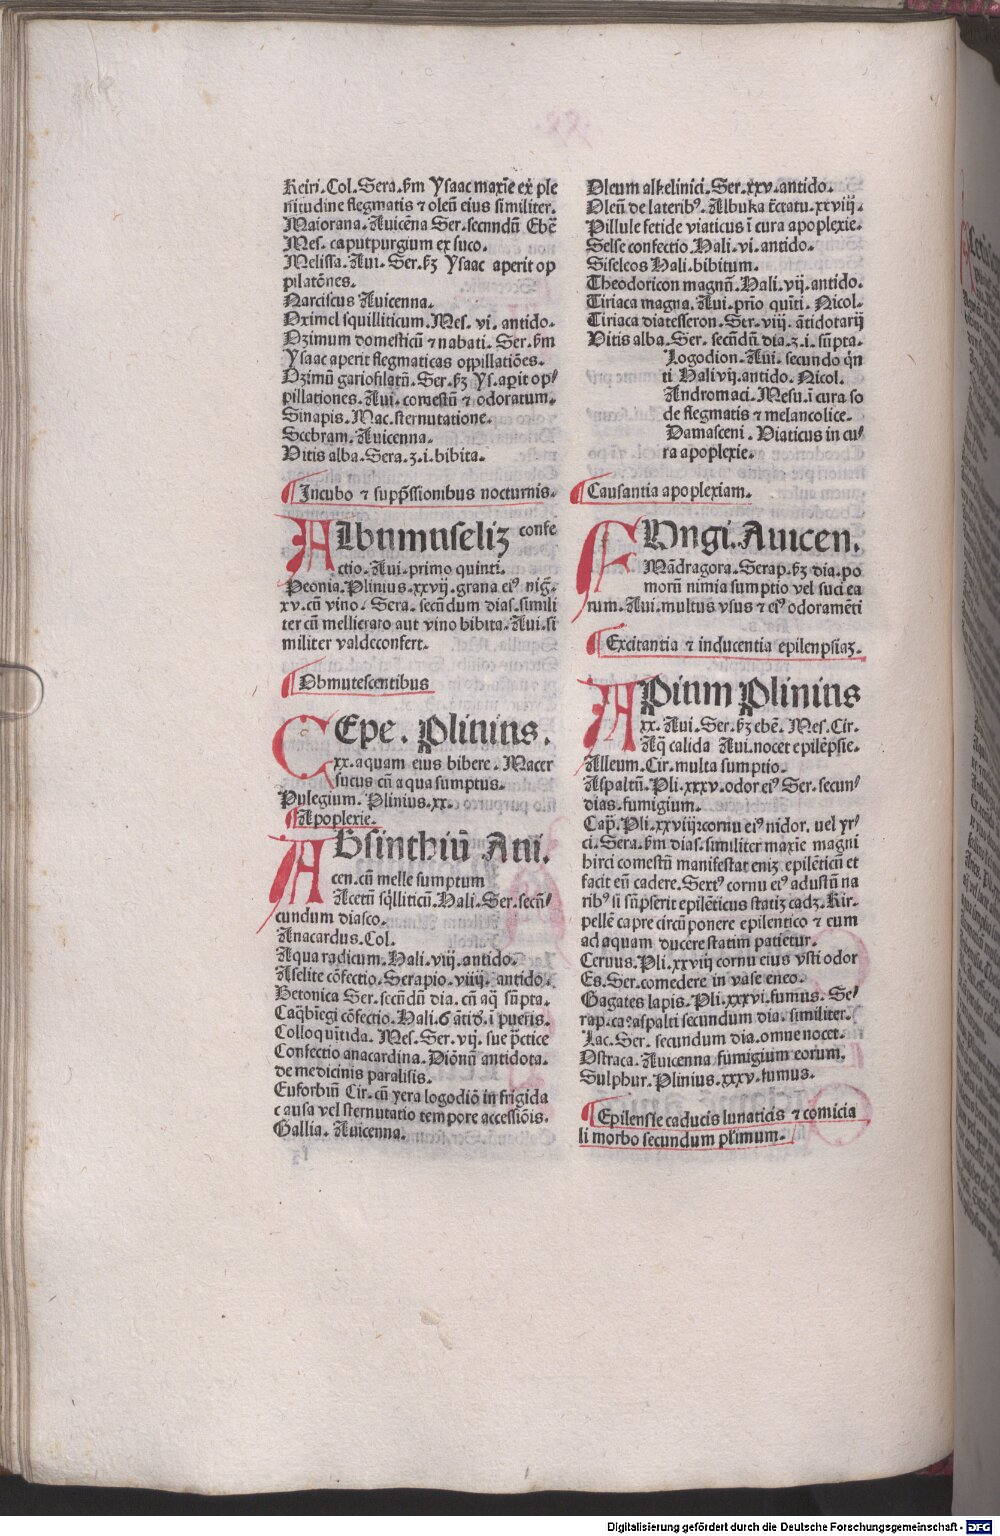 Keiri. Col. Sera. ẜm Ysaac maxie ex ple
nitudine flegmatis ⁊ oleū eius similiter.
Maiorana. Auicēna Ser. secundū Ebē
Mes. caputpurgium ex suco.
Melissa. Aui. Ser. ẜʒ Ysaac aperit op
pilatōnes.
Narciscus Auicenna.
Oximel squilliticum. Mes. vi. antido.
Ozimum domesticū ⁊ nabati. Ser. ẜm
Ysaac aperit flegmaticas oppillatiōes.
Ozimū gariofilatū. Ser. ẜʒ Ys. apit op
pillationes. Aui. comestū ⁊ odoratum.
Sinapis. Mac. sternutatione.
Secbram. Auicenna.
Vitis alba. Sera. ʒ. i. bibita.
Incubo ⁊ supp̄ssionibus nocturnis.
Albumuseliʒ confe
ctio. Aui. primo quinti.
Peonia. Plinius. xxvij. grana eiꝰ nig.
xv. cū vino. Sera. secūdum dias. simili
ter cū mellicrato aut vino bibita. Aui. si
militer valdeconfert.
Obmutescentibus
CEpe. Plinius.
xx. aquam eius bibere. Macer
sucus cū aqua sumptus.
Pulegium. Plinius. xx.
Apoplexie.
ABsinthiū Aui.
cen. cū melle sumptum
Acetū sq̄lliticū. Hali. Ser. secū
cundum diasco.
Anacardus. Col.
Aqua radicum. Hali. viij. antido.
Aselite cōfectio. Serapio. viiij. antido.
Betonica Ser. secūdū dia. cū aq̄ sūpta.
Caq̄biegi cōfectio. Hali. 6 ātid. i pueris.
Colloquītida. Mes. Ser. vij. sue p̄ctice
Confectio anacardina. Diōnū antidota.
de medicinis paralisis.
Euforbiū Cir. cū yera logodiō in frigida
causa vel sternutatio tempore accessiōis.
Gallia. Auicenna.
Oleum alkelinici. Ser. xxv. antido.
Oleū de lateribꝰ. Albuka tc̄tatu. xxviij.
Pillule fetide viaticus ī cura apoplexie.
Selse confectio Hali. vi. antido.
Siseleos Hali. bibitum.
Theodoricon magnū. Hali. vij. antido.
Tiriaca magna. Aui. prīo quīti. Nicol.
Tiriaca diatesseron. Ser. viij. ātidotarij
Vitis alba. Ser. secūdū dia. ʒ. i. sūpta.
Logodion. Aui. secundo q̄n
ti Hali vij. antido. Nicol.
Andromaci. Mesu. ī cura so
de flegmatis ⁊ melancolice.
Damasceni. Viaticus in cu
ra apoplexie.
Causantia apoplexiam.
FUngi. Auicen.
Mādragora. Serap. ẜʒ dia. po
morū nimia sumptio vel suci ea
rum. Aui. multus vsus ⁊ eiꝰ odoramēti
Excitantia ⁊ inducentia epilenpsiaʒ.
APium Plinius
xx. Aui. Ser. ẜʒ ebē. Mes. Cir.
Aq̄ calida Aui. nocet epilēpsie.
Alleum. Cir. multa sumptio.
Aspaltū. Pli. xxxv. odor eiꝰ Ser. secun
dias. fumigium.
Cap̄. Pli. xxviij: cornu eiꝰ nidor. vel yr
ci. Sera. ẜm dias. similiter maxie magni
hirci comestū manifestat eniʒ epilēticū et
facit eū cadere. Sextꝰ cornu eiꝰ adustū na
ribꝰ si sūpserit epilēticus statiʒ cadʒ. Kir.
pellē capre circūponere epilentico ⁊ cum
ad aquam ducere statim patietur.
Ceruus. Pli. xxviij cornu eius vsti odor
Es. Ser. comedere in vase eneo.
Gagates lapis. Pli. xxxvi. fumus. Se
rap. ca: aspalti secundum dia. similiter.
Lac. Ser. secundum dia. omne nocet.
Ostraca. Auicenna fumigium eorum.
Sulphur. Plinius. xxxv. fumus.
Epilensie caducis lunaticis ⁊ comicia
li morbo secundum plimum.
Digitalisierung gefördert durch die Deutsche Forschungsgemeinschaft - DFG